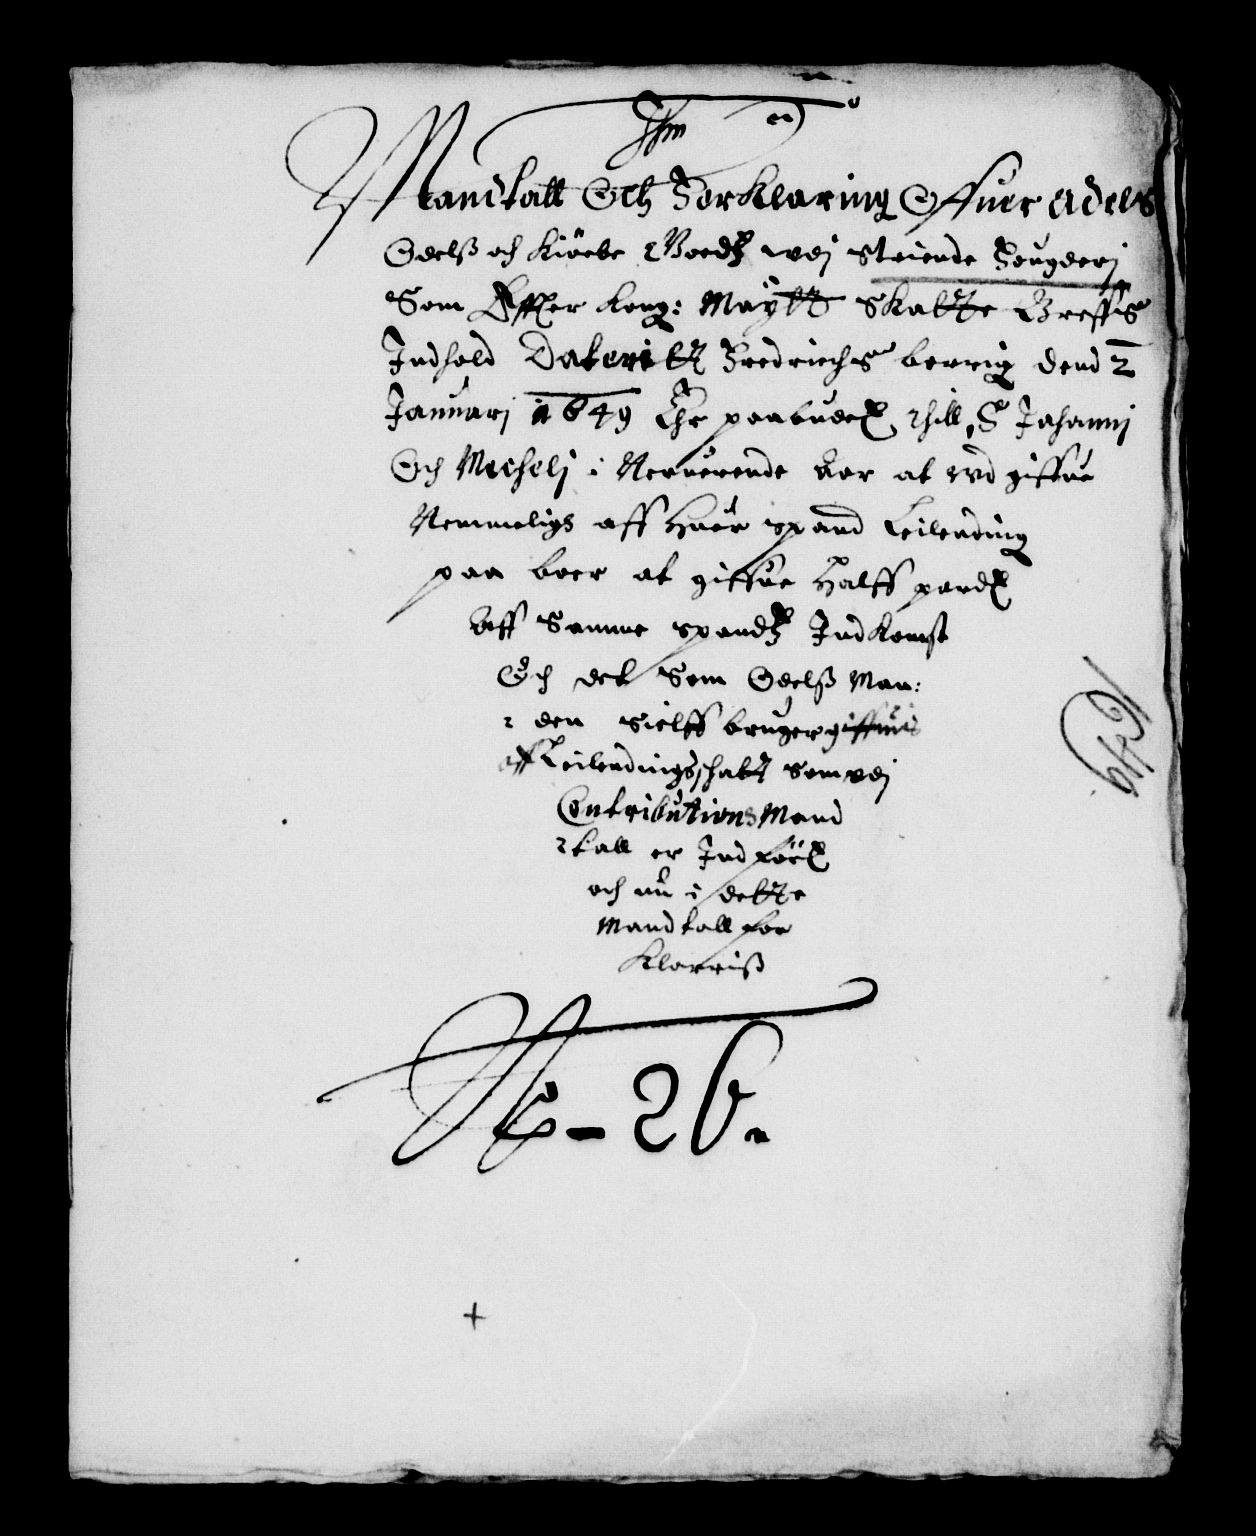 Mandtall Och Forklaring Offuer Adels
Odelß och Kiöebe Goedtz udj Steiende Fougderj
Som Effter Kong: Maytts Skatte Breffs
Indhold Dateritt Fredrichs borrig dend 2
Januarj 1649 Ehr paabudett thill S Johannj
Och Michelj i Neruerende Aar at udgiffue
Nemmeligs aff Huer spand Leilending
paa boer at giffue Halff pardt
Aff Samme spandtz Indkomst
Och det Som Odelß Man:
den sielff bruger giffuis
aff Leilendingsschatt som udj
Contributions Mand
tall er Indført
och nu i dette
Mandtall for
Klarriß
N: 26.
1649